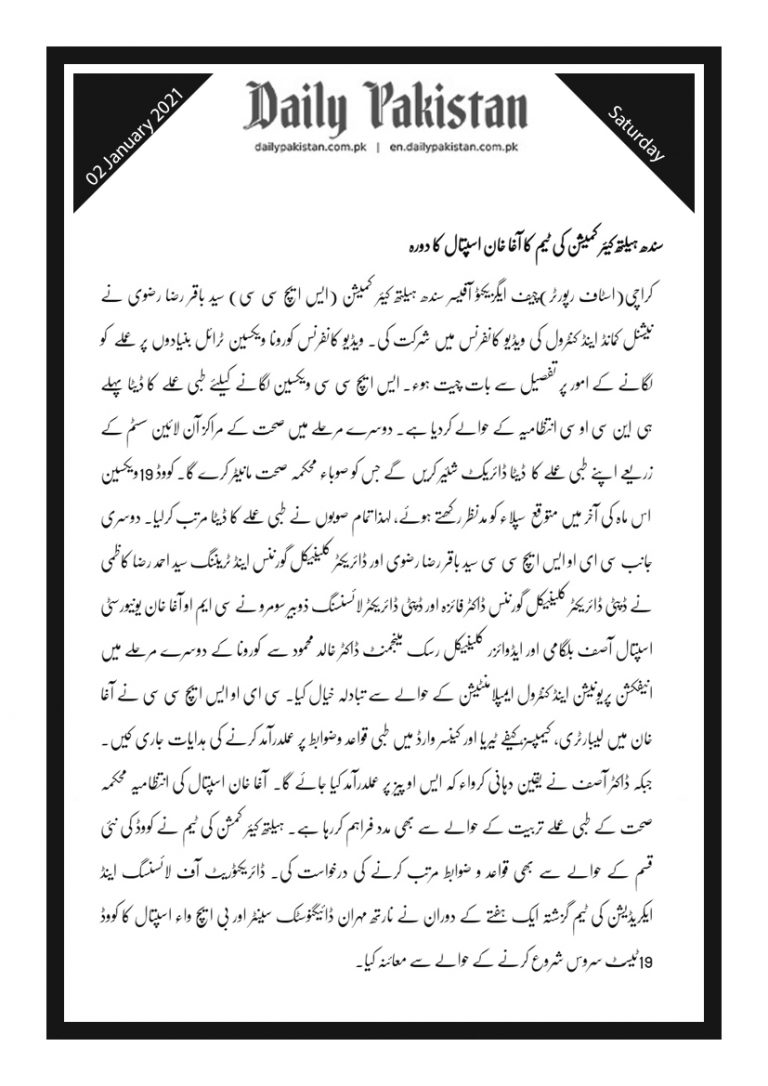 02 January 2021
Daily Pakistan
Saturday
dailypakistan.com.pk | en.dailypakistan.com.pk
سندھ ہیلتھ کیئر کمیشن کی ٹیم کا آغا خان اسپتال کا دورہ
کراچی (اسٹاف رپورٹر) چیف ایگزیکٹو آفیسر سندھ ہیلتھ کیئر کمیشن (ایس ایچ سی سی) سید باقر رضا رضوی نے
نیشنل کمانڈ اینڈ کنٹرول کی ویڈیو کانفرنس میں شرکت کی۔ ویڈیو کانفرنس کورونا ویکسین ٹرائل بنیادوں پر عملے کو
لگانے کے امور پر تفصیل سے بات چیت ہوء۔ ایس ایچ سی سی ویکسین لگانے کیلئے طبی عملے کا ڈیٹا پہلے
ہی این سی او سی انتظامیہ کے حوالے کردیا ہے۔ دوسرے مرحلے میں صحت کے مراکز آن لائین سسٹم کے
زریعے اپنے طبی عملے کا ڈیٹا ڈائریکٹ شئیر کریں گے جس کو صوباء محکمہ صحت مانیٹر کرے گا۔ کووڈ 19 ویکسین
اس ماہ کی آخر میں متوقع سپلاء کو مدنظر رکھتے ہوئے، لہذا تمام صوبوں نے طبی عملے کا ڈیٹا مرتب کرلیا۔ دوسری
جانب سی ای او ایس ایچ سی سی سید باقر رضا رضوی اور ڈائریکٹر کلینیکل گورننس اینڈ ٹریننگ سید احمد رضا کاظمی
نے ڈپٹی ڈائریکٹر کلینیکل گورننس ڈاکٹر فائزہ اور ڈپٹی ڈائریکٹر لائسنسنگ ذوہیر سومرو نے سی ایم او آغا خان یونیورسٹی
اسپتال آصف بلگامی اور ایڈوائزر کلینیکل رسک مینجمنٹ ڈاکٹر خالد محمود سے کورونا کے دوسرے مرحلے میں
انیفکشن پریونیشن اینڈ کنٹرول ایمپلامنٹیشن کے حوالے سے تبادلہ خیال کیا۔ سی ای او ایس ایچ سی سی نے آغا
خان میں لیبارٹری، کیمپسز، کیفے ٹیریا اور کینسر وارڈ میں طبی قواعد وضوابط پر عملدرآمد کرنے کی ہدایات جاری کیں۔
جبکہ ڈاکٹر آصف نے یقین دہانی کرواء کہ ایس او پیز پر عملدرآمد کیا جائے گا۔ آغا خان اسپتال کی انتظامیہ محکمہ
صحت کے طبی عملے تربیت کے حوالے سے بھی مدد فراہم کررہا ہے۔ ہیلتھ کیئر کمشن کی ٹیم نے کووڈ کی نئی
قسم کے حوالے سے بھی قواعد و ضوابط مرتب کرنے کی درخواست کی۔ ڈائریکٹوریٹ آف لائسنسنگ اینڈ
ایکریڈیشن کی ٹیم گزشتہ ایک ہفتے کے دوران نے نارتھ مہران ڈائیگنوسٹک سینٹر اور پی ایچ واء اسپتال کا کووڈ
19 ٹیسٹ سروس شروع کرنے کے حوالے سے معائنہ کیا۔